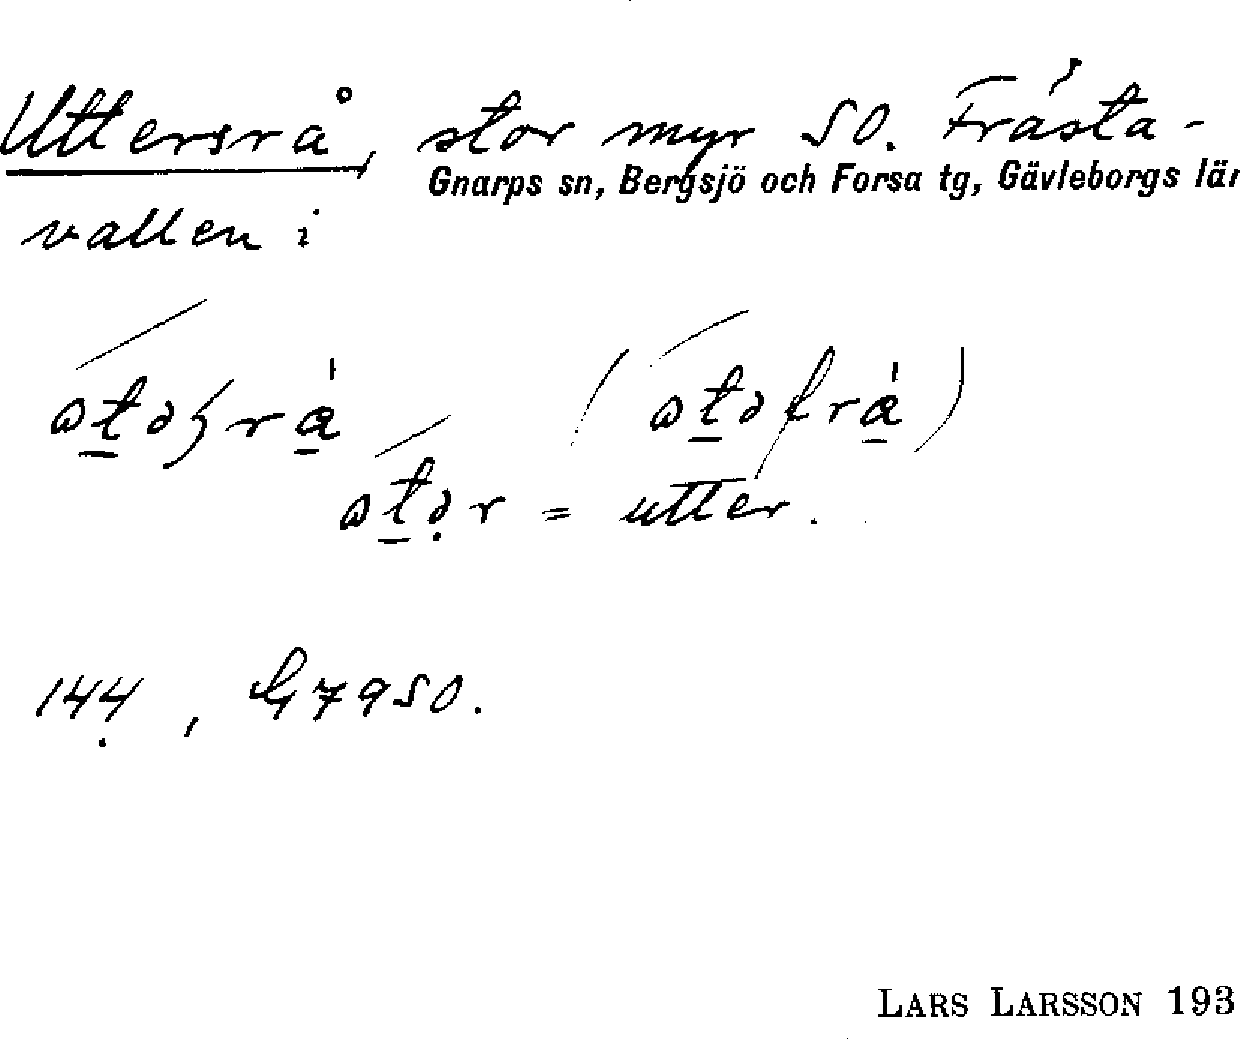 Uttersrå, stor myr SO. Frästa-
Gnarps sn, Bergsjö och Forsa tg, Gävleborgs län
vallen i
= utter.
144, G7950.
LARS LARSSON 193